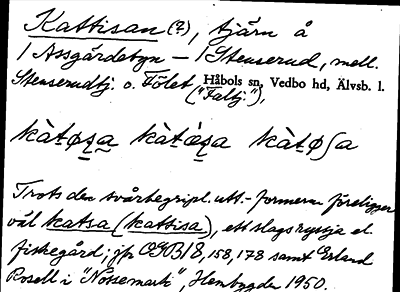 Kattisan (?), tjärn å
/ Assgärdebyn — / Stenserud, mell.
Stenserudtj. o. Fölet ("Faltj."), Håbols sn, Vedbo hd, Älvsb. l.
kàtøsa kàtòsa kàtøʃa
Trots den svårbegripl. utt.-formerna föreligger
väl katsa (kattisa), ett slags ryssja el.
fiskegård; jfr OGB 18, 158, 178 samt Erland
Rosell i "Nössemark", Hembygden 1950.